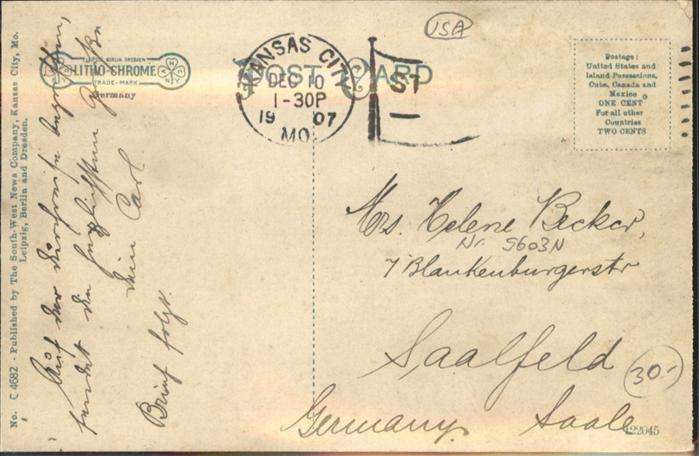 USA
POST CARD
LEIPZIG BERLIN DRESDEN
LITHO-CHROME
TRADE-MARK
Germany
KANSAS CITY
DEC 10
1-30P
19 07
MO.
ST
Postage:
United States and
Island Possessions,
Cuba, Canada and
Mexico
ONE CENT
For all other
Countries
TWO CENTS
No. C 4682 - Published by The South-West News Company, Kansas City, Mo.
Leipzig, Berlin and Dresden.
Auf der
sendet die herzlichsten Grüße
Dein Carl
Brief folgt.
Mrs. Helene Becker,
Nr. 9603N
7 Blankenburgerstr
Saalfeld
30.-
Germany. Saale
122045